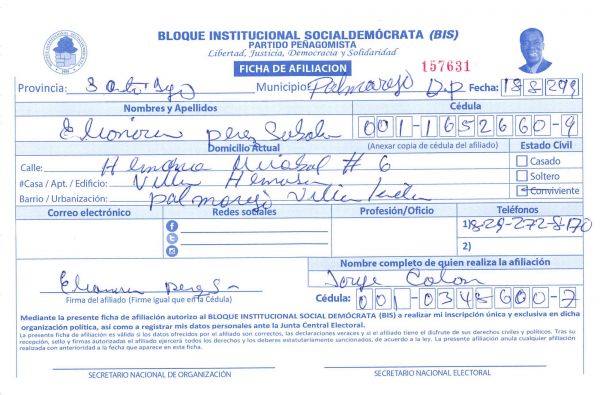 BLOQUE INSTITUCIONAL SOCIALDEMÓCRATA (BIS)
PARTIDO PEÑAGOMISTA
Libertad, Justicia, Democracia y Solidaridad
FICHA DE AFILIACION
157631
Provincia: Municipio: Palmarejo Fecha:
Nombres y Apellidos Cédula
perez 001-1652660-9
Domicilio Actual (Anexar copia de cédula del afiliado) Estado Civil
Calle: # 6 Casado
#Casa / Apt. / Edificio: Villa Soltero
Barrio / Urbanización: palmarejo Villa Conviviente
Correo electrónico Redes sociales Profesión/Oficio Teléfonos
1) 829-272-8170
2)
Nombre completo de quien realiza la afiliación
Jorge Colon
Firma del afiliado (Firme igual que en la Cédula) Cédula: 001-0348600-7
Mediante la presente ficha de afiliación autorizo al BLOQUE INSTITUCIONAL SOCIAL DEMÓCRATA (BIS) a realizar mi inscripción única y exclusiva en dicha
organización política, así como a registrar mis datos personales ante la Junta Central Electoral.
La presente ficha de afiliación es válida si los datos ofrecidos por el afiliado son correctos, las declaraciones veraces y si el afiliado tiene el disfrute de sus derechos civiles y políticos. Tras su
recepción, sello y firmas autorizadas el afiliado ejercerá todos los derechos y los deberes estatutariamente sancionados, de acuerdo a la ley. La presente afiliación anula cualquier afiliación
realizada con anterioridad a la fecha que aparece en esta ficha.
SECRETARIO NACIONAL DE ORGANIZACIÓN SECRETARIO NACIONAL ELECTORAL